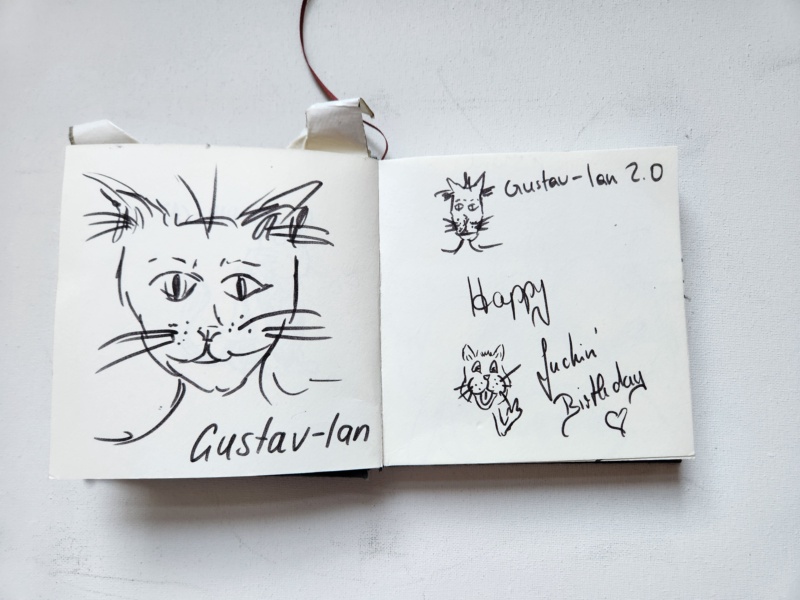 Gustav-Ian
Gustav-Ian 2.0
Happy
fuckin'
Birthday